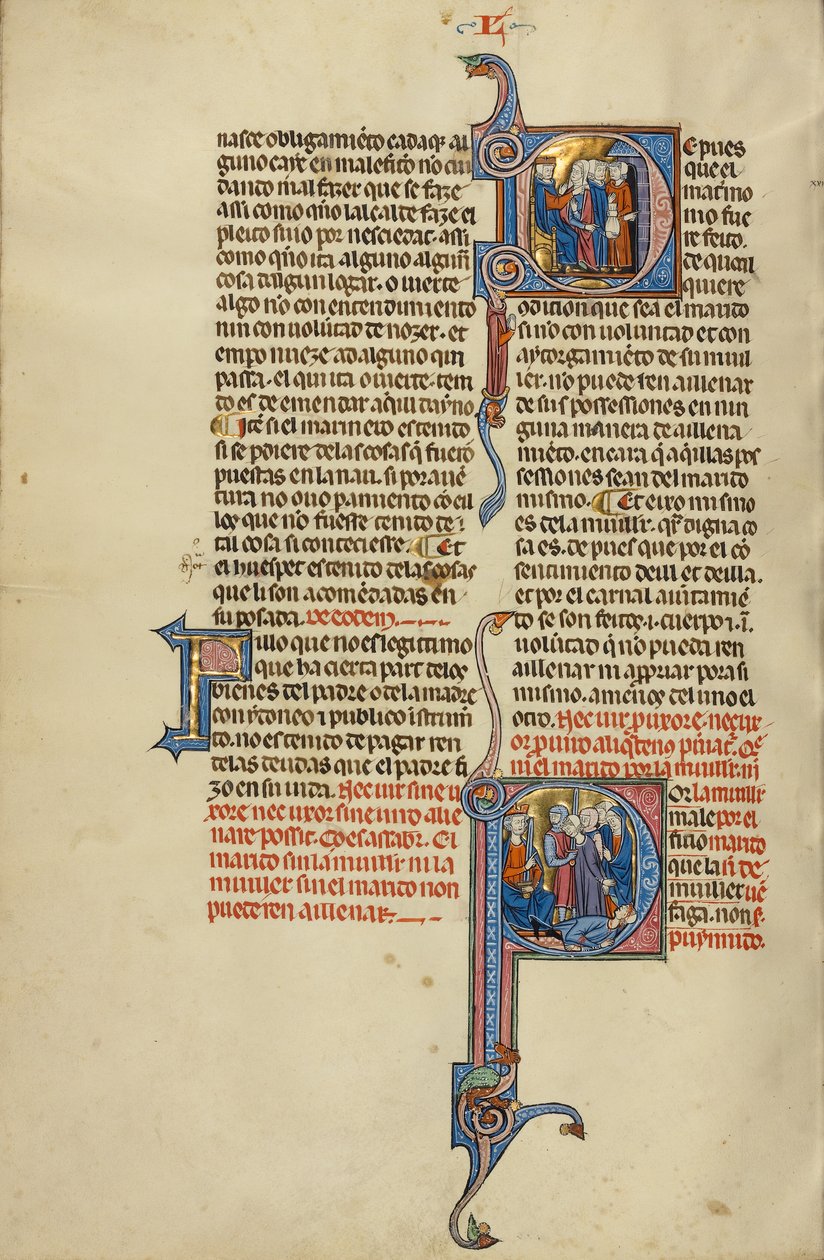 L
nasce obligamiēto cadaq̄ al
guno caye en maleficio nō cui
dando mal fazer que se faze
assi como q̄ño lalcalde faze el
pleito sino por nesciedat. assi
como q̄ño ita alguno alguā
cosa dalgun logar. o uierte
algo nō con entendimiento
nin con uolūtad de nozer. et
empo nueze ad alguno qui
passa. el qui ita o uierte. tem
do es de emendar aq̄l daynno
Itē si el marinero es tenido
si se pdiere de las cosas q̄ fuerō
puestas en la nau. si por auē
tura no ouo paramiento cō eil
los que nō fuesse tenido de
tal cosa si conteciesse. Et
el huespet es tenido de las cosas
que li son acomēdadas en
su posada. De eodem.
Fillo que no es legittimo
que ha cierta part de los
bienes del padre o de la madre
con ydoneo ⁊ publico īstrumē
to. no es tenido de pagar ren
de las deudas que el padre fi
zo en su uida. Nec uir sine u
xore nec uxor sine uiro alie
nare possit. Eł
marido sin la muiller ni la
muiller sin el marido non
puede ren aillenar.
Depues
que el
matrimo
nio fue
re feito.
de qual
quiere
ɔdition que sea el marido
sino con uoluntad et con
aytorgamiēto de su muil
ler. no puede ren aillenar
de sus possessiones en nin
guna manera de aillena
miēto. encara q̄ aq̄llas pos
sessiones sean del marido
mismo. Et eixo mismo
es de la muiller. q̄r digna co
sa es. de pues que por el cō
sentimiento deill et deilla.
et por el carnal aiūtamiē
to se son feitos .i. cuerpo ⁊ .i.
uolūtad q̄ no pueda ren
aillenar ni appriar pora si
mismo. amenos del uno el
otro. Nec uir p̄ uxore. nec ux
or p̄ uiro
ni el marido por la muiller. ni
Por la muiller
male por el
fitio marido
que la si de
muiller uē
faga. non
puynnido.